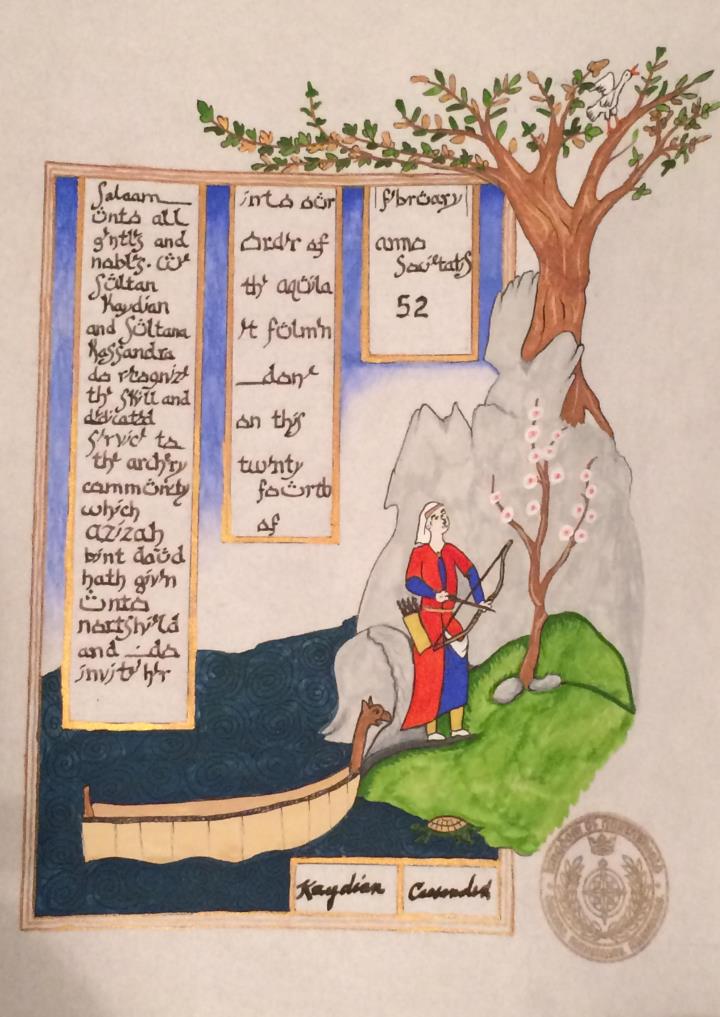 Salaam
Unto all
g'ntl's and
nobl's. W'
Sultan
Kaydian
and Sultana
Kassandra
do r'cogniz'
th' skill and
d'dicat'd
s'rvic' to
th' arch'ry
community
which
azizah
bint daud
hath giv'n
unto
northshi'ld
and do
invit' h'r
into our
Ord'r of
th' aquila
't fulm'n
don'
on this
tw'nty
fourth
of
f'bruary
anno
Soci'tatis
52
Kaydian